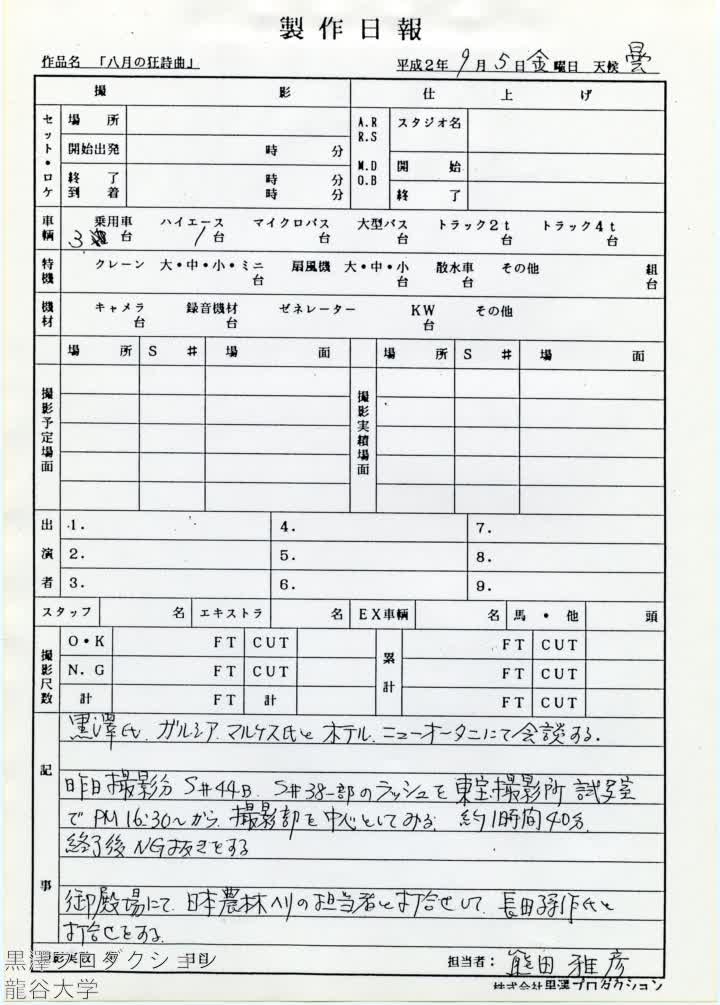 製作日報
作品名 「八月の狂詩曲」 平成2年 9月 5日 金曜日 天候 曇
撮 影 仕 上 げ
セット・ロケ 場 所 A.R R.S M.D O.B スタジオ名
開始出発 時 分 開 始
終 了 到 着 時 分 時 分 終 了
車輌 乗用車 3台 ハイエース 1台 マイクロバス 台 大型バス 台 トラック2t 台 トラック4t 台
特機 クレーン 大・中・小・ミニ 台 扇風機 大・中・小 台 散水車 台 その他 組 台
機材 キャメラ 台 録音機材 台 ゼネレーター KW 台 その他
場 所 S # 場 面 場 所 S # 場 面
撮影予定場面 撮影実績場面
出演者 1. 4. 7.
2. 5. 8.
3. 6. 9.
スタッフ 名 エキストラ 名 EX車輌 名 馬・他 頭
撮影尺数 O・K FT CUT 累計 FT CUT
N.G FT CUT FT CUT
計 FT 計 FT CUT
記事
黒澤氏、ガルシア.マルケス氏と ホテル.ニューオータニにて会談する.
昨日撮影分 S#44B. S#38一部のラッシュを 東宝撮影所 試写室
で PM 16:30〜から. 撮影部を中心としてみる. 約1時間40分.
終了後 NG抜きをする
御殿場にて. 日本農林ヘリの担当者と打合せして. 長田孫作氏と
打合せをする.
撮影実数 日目 担当者: 熊田雅彦
株式会社黒澤プロダクション
黒澤プロダクション
龍谷大学